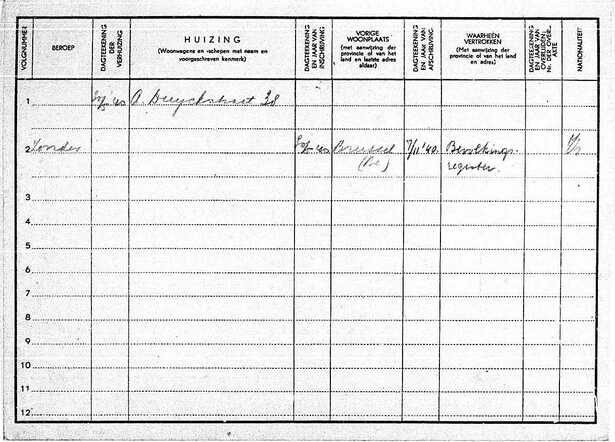 VOLGNUMMER
BEROEP
DAGTEEKENING DER VERHUIZING
HUIZING
(Woonwagens en schepen met naam en voorgeschreven kenmerk)
DAGTEEKENING EN JAAR VAN INSCHRIJVING
VORIGE WOONPLAATS
(met aanwijzing der provincie of van het land en laatste adres aldaar)
DAGTEEKENING EN JAAR VAN AFSCHRIJVING
WAARHEEN VERTROKKEN
(Met aanwijzing der provincie of van het land en adres)
DAGTEEKENING EN JAAR VAN OVERLIJDEN; Nr. DER OVERL. AKTE
NATIONALITEIT
1 '40 A. Duyckstraat 38
2 Zonder '40 Brussel 7/11 '40. Bevolkings-
(Be) register.
3
4
5
6
7
8
9
10
11
12